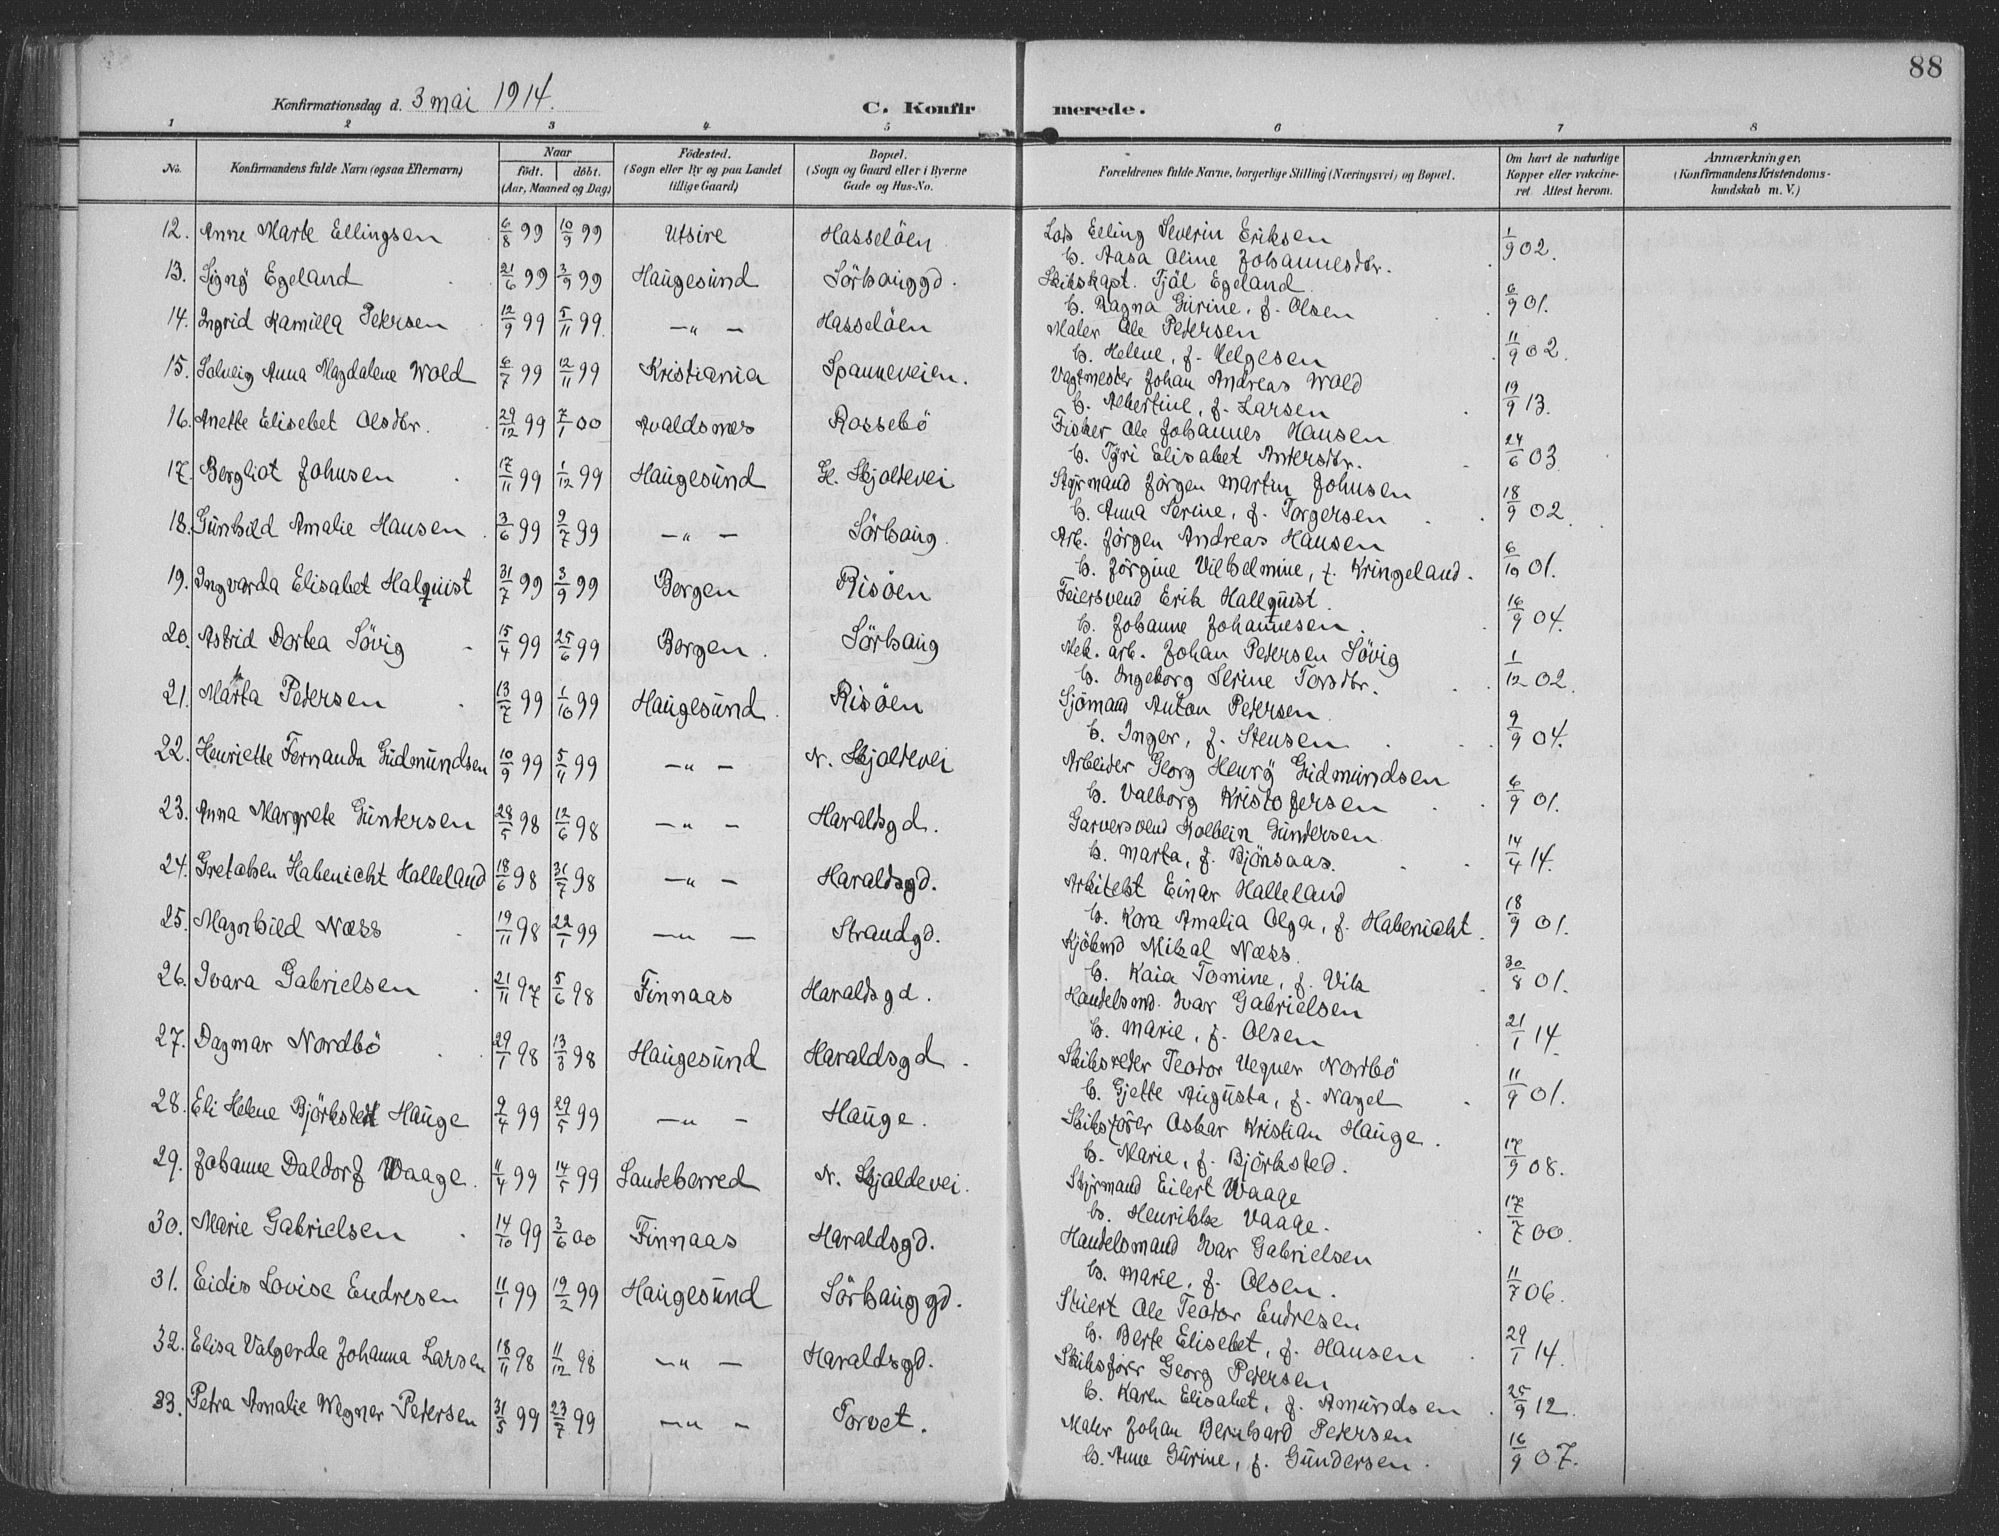 88
Konfirmationsdag d. 3 mai 1914. C. Konfirmerede.
1 2 3 4 5 6 7 8
No. Konfirmandens fulde Navn (ogsaa Efternavn) Naar født. døbt. (Aar, Maaned og Dag) Fødested. (Sogn eller By og paa Landet tillige Gaard) Bopæl. (Sogn og Gaard eller i Byerne Gade og Hus-No. Forældrenes fulde Navne, borgerlige Stilling (Næringsvei) og Bopæl. Om havt de naturlige Kopper eller vaccineret. Attest herom. Anmærkninger, (Konfirmandens Kristendomskundskab m. V.)
12. Anne Marte Ellingsen 6/8 99 10/9 99 Utsire Hasseløen Los Elling Severin Eriksen
h. Aasa Oline Johannesdtr. 1/9 02.
13. Signy Egeland 21/6 99 3/9 99 Haugesund Sørhauggd. Skibskapt. Tjøl Egeland
h. Ragna Gurine, f. Olsen 6/9 01.
14. Ingrid Kamilla Petersen 12/9 99 5/11 99. —„— Hasseløen Maler Ole Petersen
h. Helene, f. Helgesen 11/9 02.
15. Solveig Anna Magdalene Wold 6/7 99 12/11 99 Kristiania Spanneveien. Vagtmester Johan Andreas Wold
h. Albertine, f. Larsen 19/9 13.
16. Anette Elisebet Olsdtr. 29/12 99 7/1 00 Avaldsnes Rossebø Fisker Ole Johannes Hansen
h. Tyri Elisabet Andersdtr. 24/6 03
17. Bergliot Johnsen 17/11 99 1/12 99 Haugesund Gl. Skjoldevei Styrmand Jørgen Martin Johnsen
h. Anna Serine, f. Torgersen 18/9 02
18. Gunhild Amalie Hansen 3/6 99 9/7 99 —„— Sørhaug. Arb. Jørgen Andreas Hansen
h. Jørgine Vilhelmine, f. Kringeland. 6/10 01.
19. Ingvarda Elisabet Halquist 31/7 99 3/9 99 Bergen Risøen Feiersvend Erik Hallquist.
h. Johanne Johannesen. 16/9 04.
20. Astrid Dortea Søvig 15/4 99 25/6 99 Bergen. Sørhaug Mek. arb. Johan Petersen Søvig
h. Ingeborg Serine Torsdtr. 1/12 02.
21. Marta Petersen 13/7 99 1/10 99 Haugesund Risøen Sjømand Anton Petersen
h. Inger, f. Stensen. 9/9 04.
22. Henriette Fernanda Gudmundsen 10/9 99 5/11 99 —„— N. Skjoldevei Arbeider Georg Henry Gudmundsen
h. Valborg Kristofersen 6/9 01.
23. Anna Margrete Gundersen 28/5 98 12/6 98 —„— Haraldsgd. Garversvend Kolbein Gundersen
h. Marta, f. Bjönsaas. 14/4 14.
24. Gretchen Habenicht Halleland 18/6 98 31/7 98 —„— Haraldsgd. Arkitekt Einar Halleland
h. Kora Amalia Olga, f. Habenicht. 18/9 01.
25. Magnhild Næss 19/11 98 22/1 99 —„— Strandgd. Kjøbmd Mikal Næss.
h. Kaia Tomine, f. Vik 30/8 01.
26. Ivara Gabrielsen 21/11 97 5/6 98 Finnaas Haraldsgd. Handelsmd. Ivar Gabrielsen
h. Marie, f. Olsen 21/1 14.
27. Dagmar Nordbø 29/1 98 13/3 98 Haugesund Haraldsgd. Skibsreder Teodor Vegner Nordbø
h. Gjette Augusta, f. Nagel 11/9 01.
28. Eli Helene Björksted Hauge 9/4 99 29/5 99 —„— Hauge. Skibsfører Oskar Kristian Hauge.
h. Marie, f. Björksted. 17/9 08.
29. Johanne Daldorf Waage. 11/4 99 14/5 99 Sandeherred N. Skjoldevei. Styrmand Eilert Waage
h. Henrikke Vaage. 17/7 00.
30. Marie Gabrielsen 14/10 99 3/6 00 Finnaas Haraldsgd. Handelsmand Ivar Gabrielsen
h. Marie, f. Olsen. 11/7 06.
31. Eidis Lovise Endresen 11/1 99 19/2 99 Haugesund Sørhauggd. Ole Teodor Endresen
h. Berte Elisebet, f. Hansen 29/1 14.
32. Elisa Valgerda Johanna Larsen 18/11 98 11/12 98 —„— Haraldsgd. Skibsfører Georg Petersen
h. Karen Elisabet, f. Amundsen. 25/9 12.
33. Petra Amalie Wegner Petersen 31/5 99 23/7 99 —„— Torvet. Maler Johan Bernhard Petersen
h. Anne Gurine, f. Gundersen. 16/9 07.